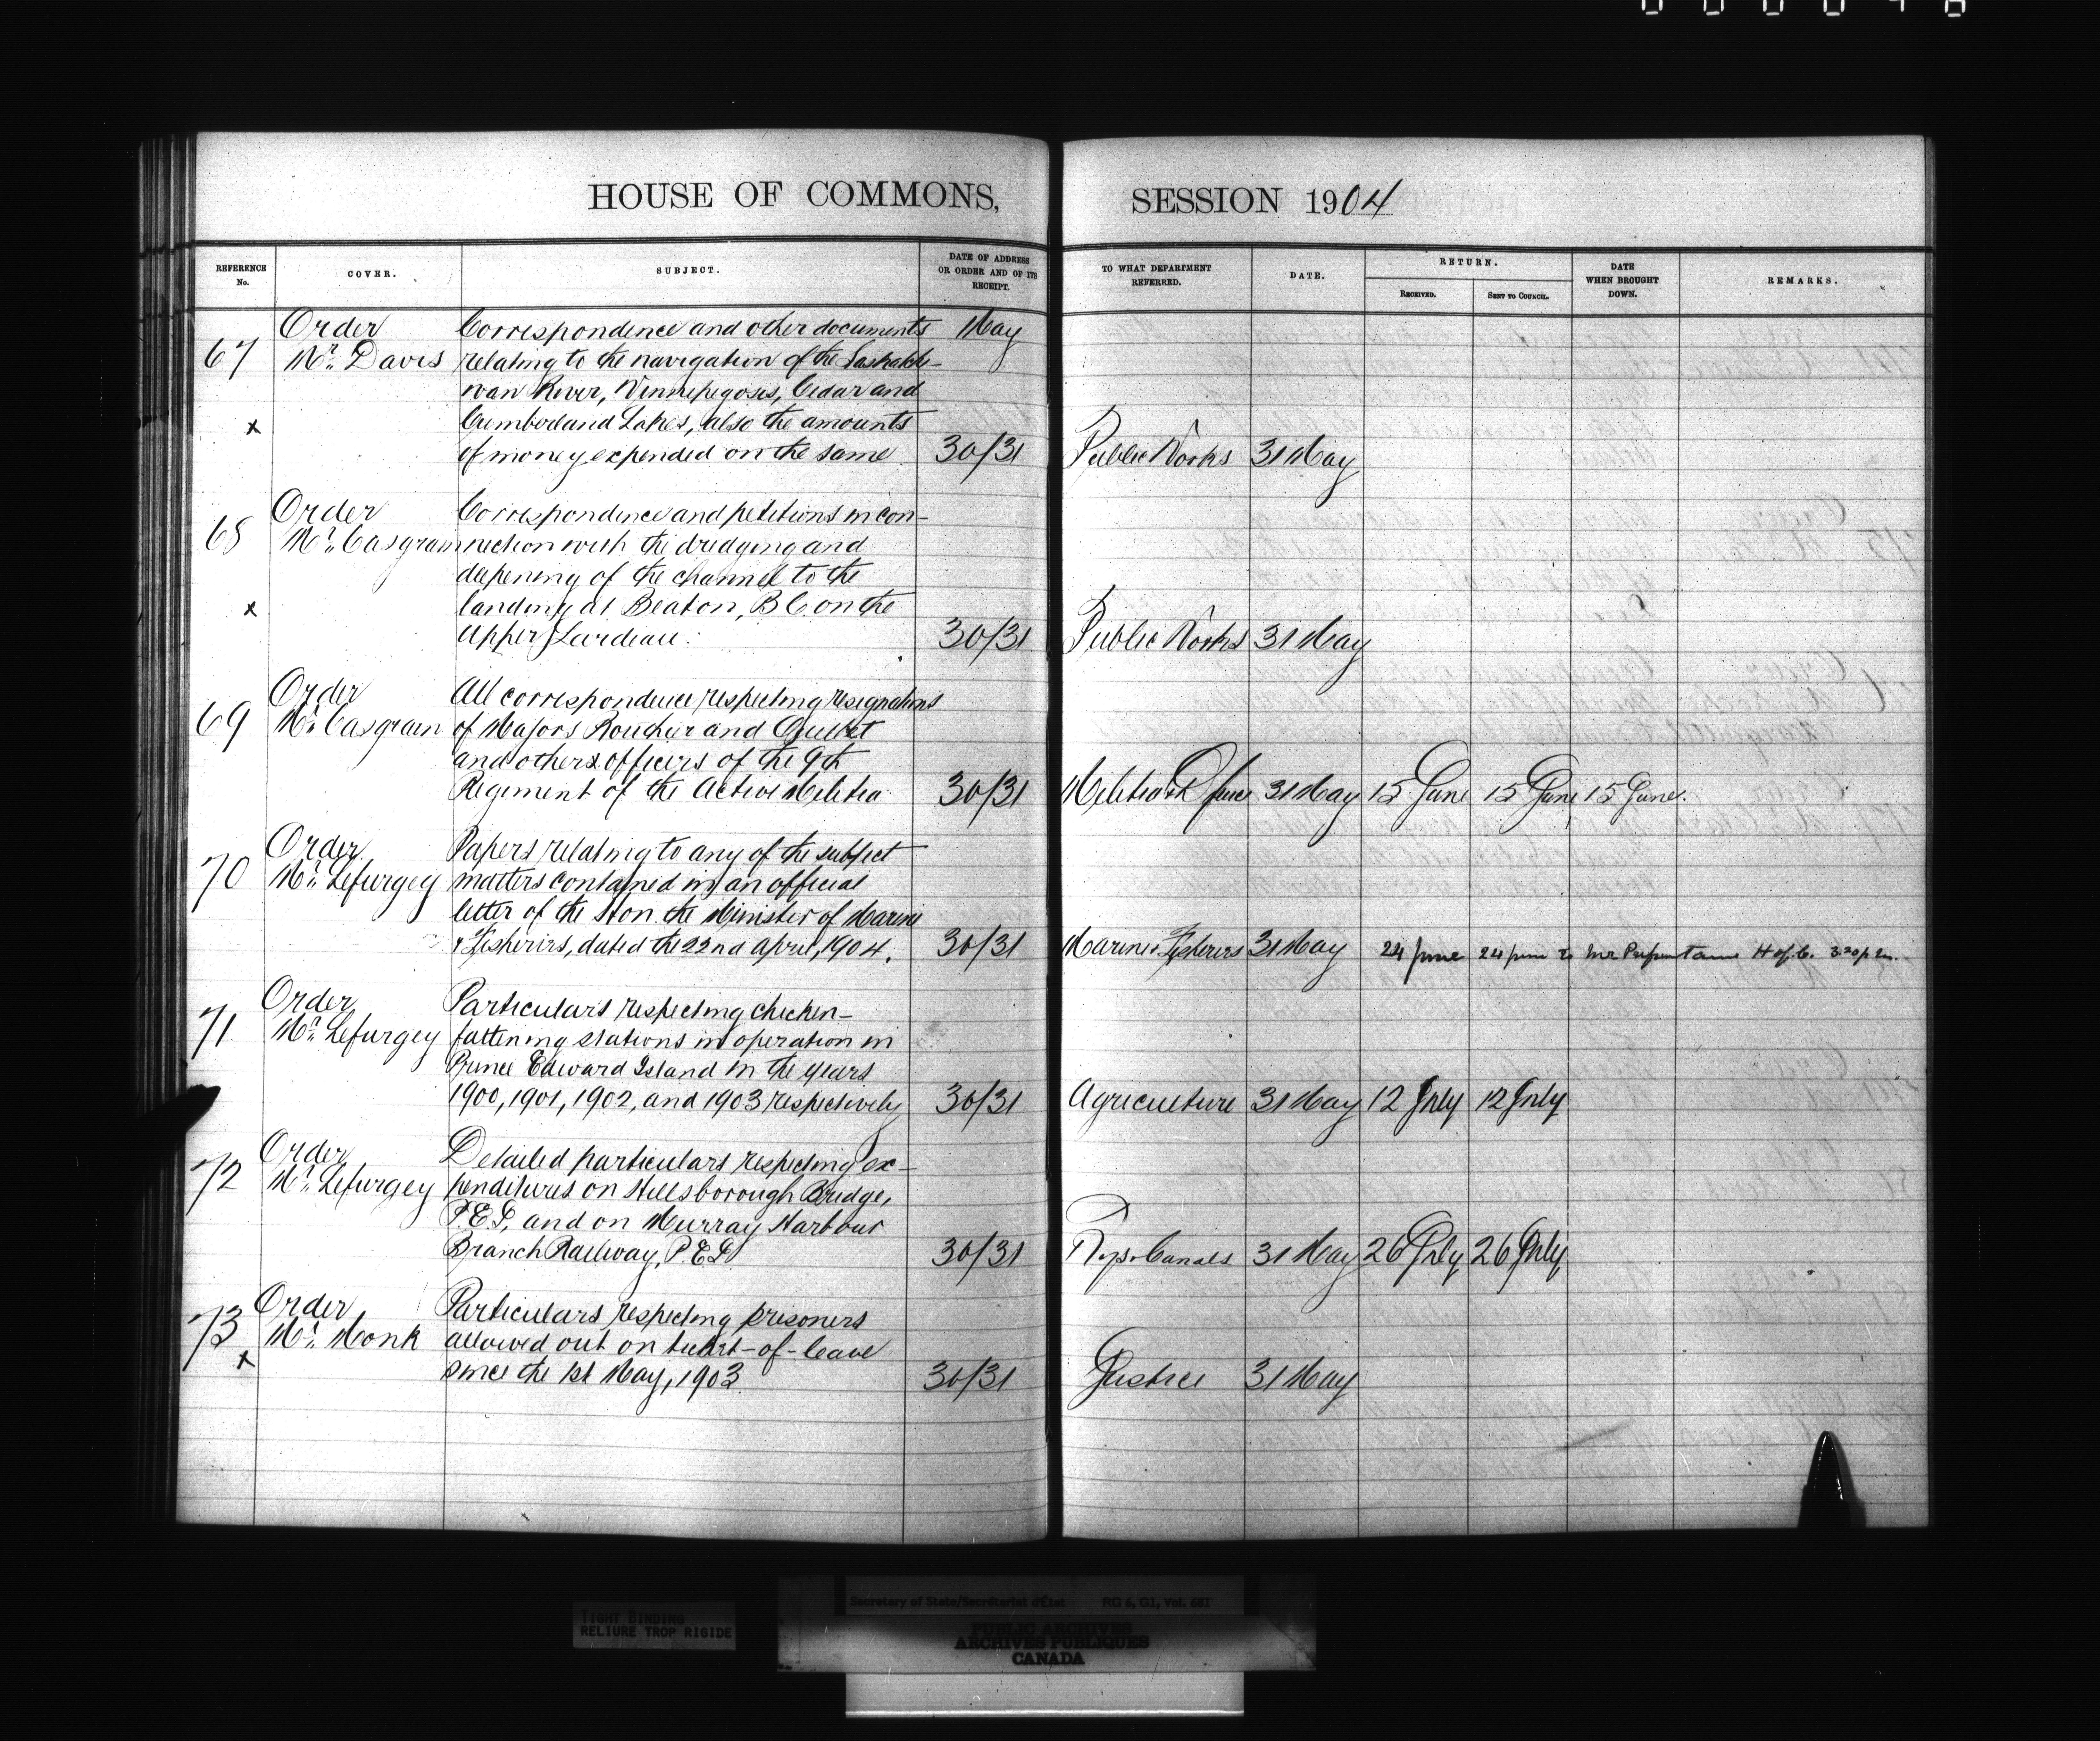 HOUSE OF COMMONS,
SESSION 1904
REFERENCE No.
COVER.
SUBJECT.
DATE OF ADDRESS OR ORDER AND OF ITS RECEIPT.
TO WHAT DEPARTMENT REFERRED.
DATE.
RETURN.
RECEIVED.
SENT TO COUNCIL.
DATE WHEN BROUGHT DOWN.
REMARKS.
Order Correspondence and other documents May
67 Mr. Davis relating to the navigation of the Saskatche-
wan River, Winnipegosis, Cedar and
x Cumberland Lakes, also the amounts
of money expended on the same 30/31 Public Works 31 May
Order Correspondence and petitions in con-
68 Mr. Casgrain nection with the dredging and
deepening of the channel to the
x landing at Beaton, B.C. on the
Upper Lardeau. 30/31 Public Works 31 May
Order All correspondence respecting resignations
69 Mr. Casgrain of Majors Roucher and Ouellet
and others officers of the 9th
Regiment of the Active Militia 30/31 Militia & Defence 31 May 15 June 15 June 15 June.
Order Papers relating to any of the subject
70 Mr. Lefurgey matters contained in an official
letter of the Hon. the Minister of Marine
& Fisheries, dated the 22nd April, 1904. 30/31 Marine & Fisheries 31 May 24 June 24 June to Mr Prefontaine H of C. 3.30 p.m.
Order Particulars respecting chicken-
71 Mr. Lefurgey fattening stations in operation in
Prince Edward Island in the years
1900, 1901, 1902, and 1903 respectively 30/31 Agriculture 31 May 12 July 12 July
Order Detailed particulars respecting ex-
72 Mr. Lefurgey penditures on Hillsborough Bridge,
P.E.I, and on Murray Harbour
Branch Railway, P.E.I 30/31 Rys & Canals 31 May 26 July 26 July
Order Particulars respecting prisoners
73 Mr. Monk allowed out on ticket-of-leave
x since the 1st May, 1903. 30/31 Justice 31 May
TIGHT BINDING
RELIURE TROP RIGIDE
Secretary of State/Secrétariat d'État RG 6, G1, Vol. 681
PUBLIC ARCHIVES
ARCHIVES PUBLIQUES
CANADA